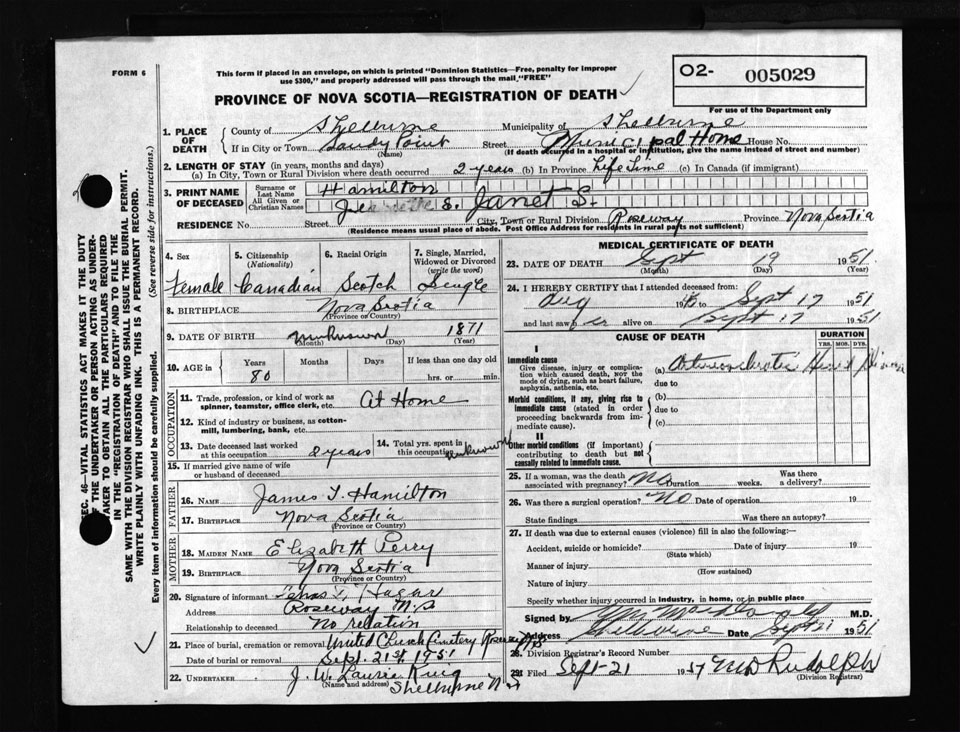 FORM 6
This form if placed in an envelope, on which is printed "Dominion Statistics—Free, penalty for improper
use $300," and properly addressed will pass through the mail "FREE"
O2- 005029
For use of the Department only
PROVINCE OF NOVA SCOTIA—REGISTRATION OF DEATH
1. PLACE OF DEATH
County of Shelburne Municipality of Shelburne
If in City or Town Sandy Point Street Municipal Home House No.
(Name) (If death occurred in a hospital or institution, give the name instead of street and number)
2. LENGTH OF STAY (in years, months and days)
(a) In City, Town or Rural Division where death occurred 2 years (b) In Province Life Time (c) In Canada (if immigrant)
3. PRINT NAME OF DECEASED
Surname or Last Name Hamilton
All Given or Christian Names S. Janet S.
RESIDENCE No. Street City, Town or Rural Division Roseway Province Nova Scotia
(Residence means usual place of abode. Post Office Address for residents in rural parts not sufficient)
4. Sex
Female
5. Citizenship (Nationality)
Canadian
6. Racial Origin
Scotch
7. Single, Married, Widowed or Divorced (write the word)
Single
8. BIRTHPLACE Nova Scotia
(Province or Country)
9. DATE OF BIRTH unknown 1871
(Month) (Day) (Year)
10. AGE in Years Months Days If less than one day old
80 hrs. or min.
OCCUPATION
11. Trade, profession, or kind of work as spinner, teamster, office clerk, etc. At Home
12. Kind of industry or business, as cotton-mill, lumbering, bank, etc.
13. Date deceased last worked at this occupation 2 years
14. Total yrs. spent in this occupation unknown
15. If married give name of wife or husband of deceased
FATHER
16. NAME James T. Hamilton
17. BIRTHPLACE Nova Scotia
(Province or Country)
MOTHER
18. MAIDEN NAME Elizabeth Perry
19. BIRTHPLACE Nova Scotia
(Province or Country)
20. Signature of informant Hagar
Address Roseway N.S
Relationship to deceased No relation
21. Place of burial, cremation or removal United Church Cemetery Roseway NS
Date of burial or removal Sept. 21st 1951
22. UNDERTAKER J. W. Laurie King
(Name and address) Shelburne N.S
MEDICAL CERTIFICATE OF DEATH
23. DATE OF DEATH Sept 19 1951
(Month) (Day) (Year)
24. I HEREBY CERTIFY that I attended deceased from:
Aug 19 to Sept 17 1951
and last saw her alive on Sept 17 1951
CAUSE OF DEATH
DURATION
YRS. MOS. DYS.
I
Immediate cause
Give disease, injury or complication which caused death, nor the mode of dying, such as heart failure, asphyxia, asthenia, etc.
(a) Arteriosclerotic Heart Disease
due to
Morbid conditions, if any, giving rise to immediate cause (stated in order proceeding backwards from immediate cause).
(b)
due to
(c)
II
Other morbid conditions (if important) contributing to death but not causally related to immediate cause.
25. If a woman, was the death associated with pregnancy? No Duration weeks. Was there a delivery?
26. Was there a surgical operation? No Date of operation 19
State findings Was there an autopsy?
27. If death was due to external causes (violence) fill in also the following:—
Accident, suicide or homicide? Date of injury 19
(State which)
Manner of injury
(How sustained)
Nature of injury
Specify whether injury occurred in industry, in home, or in public place
Signed by MacDonald M.D.
Address Shelburne Date Sept 21 1951
28. Division Registrar's Record Number
29. Filed Sept 21 1951 Rudolph
(Division Registrar)
SEC. 46—VITAL STATISTICS ACT MAKES IT THE DUTY
OF THE UNDERTAKER OR PERSON ACTING AS UNDER-
TAKER TO OBTAIN ALL THE PARTICULARS REQUIRED
IN THE "REGISTRATION OF DEATH" AND TO FILE THE
SAME WITH THE DIVISION REGISTRAR WHO SHALL ISSUE THE BURIAL PERMIT.
WRITE PLAINLY WITH UNFADING INK. THIS IS A PERMANENT RECORD.
Every item of information should be carefully supplied. (See reverse side for instructions.)